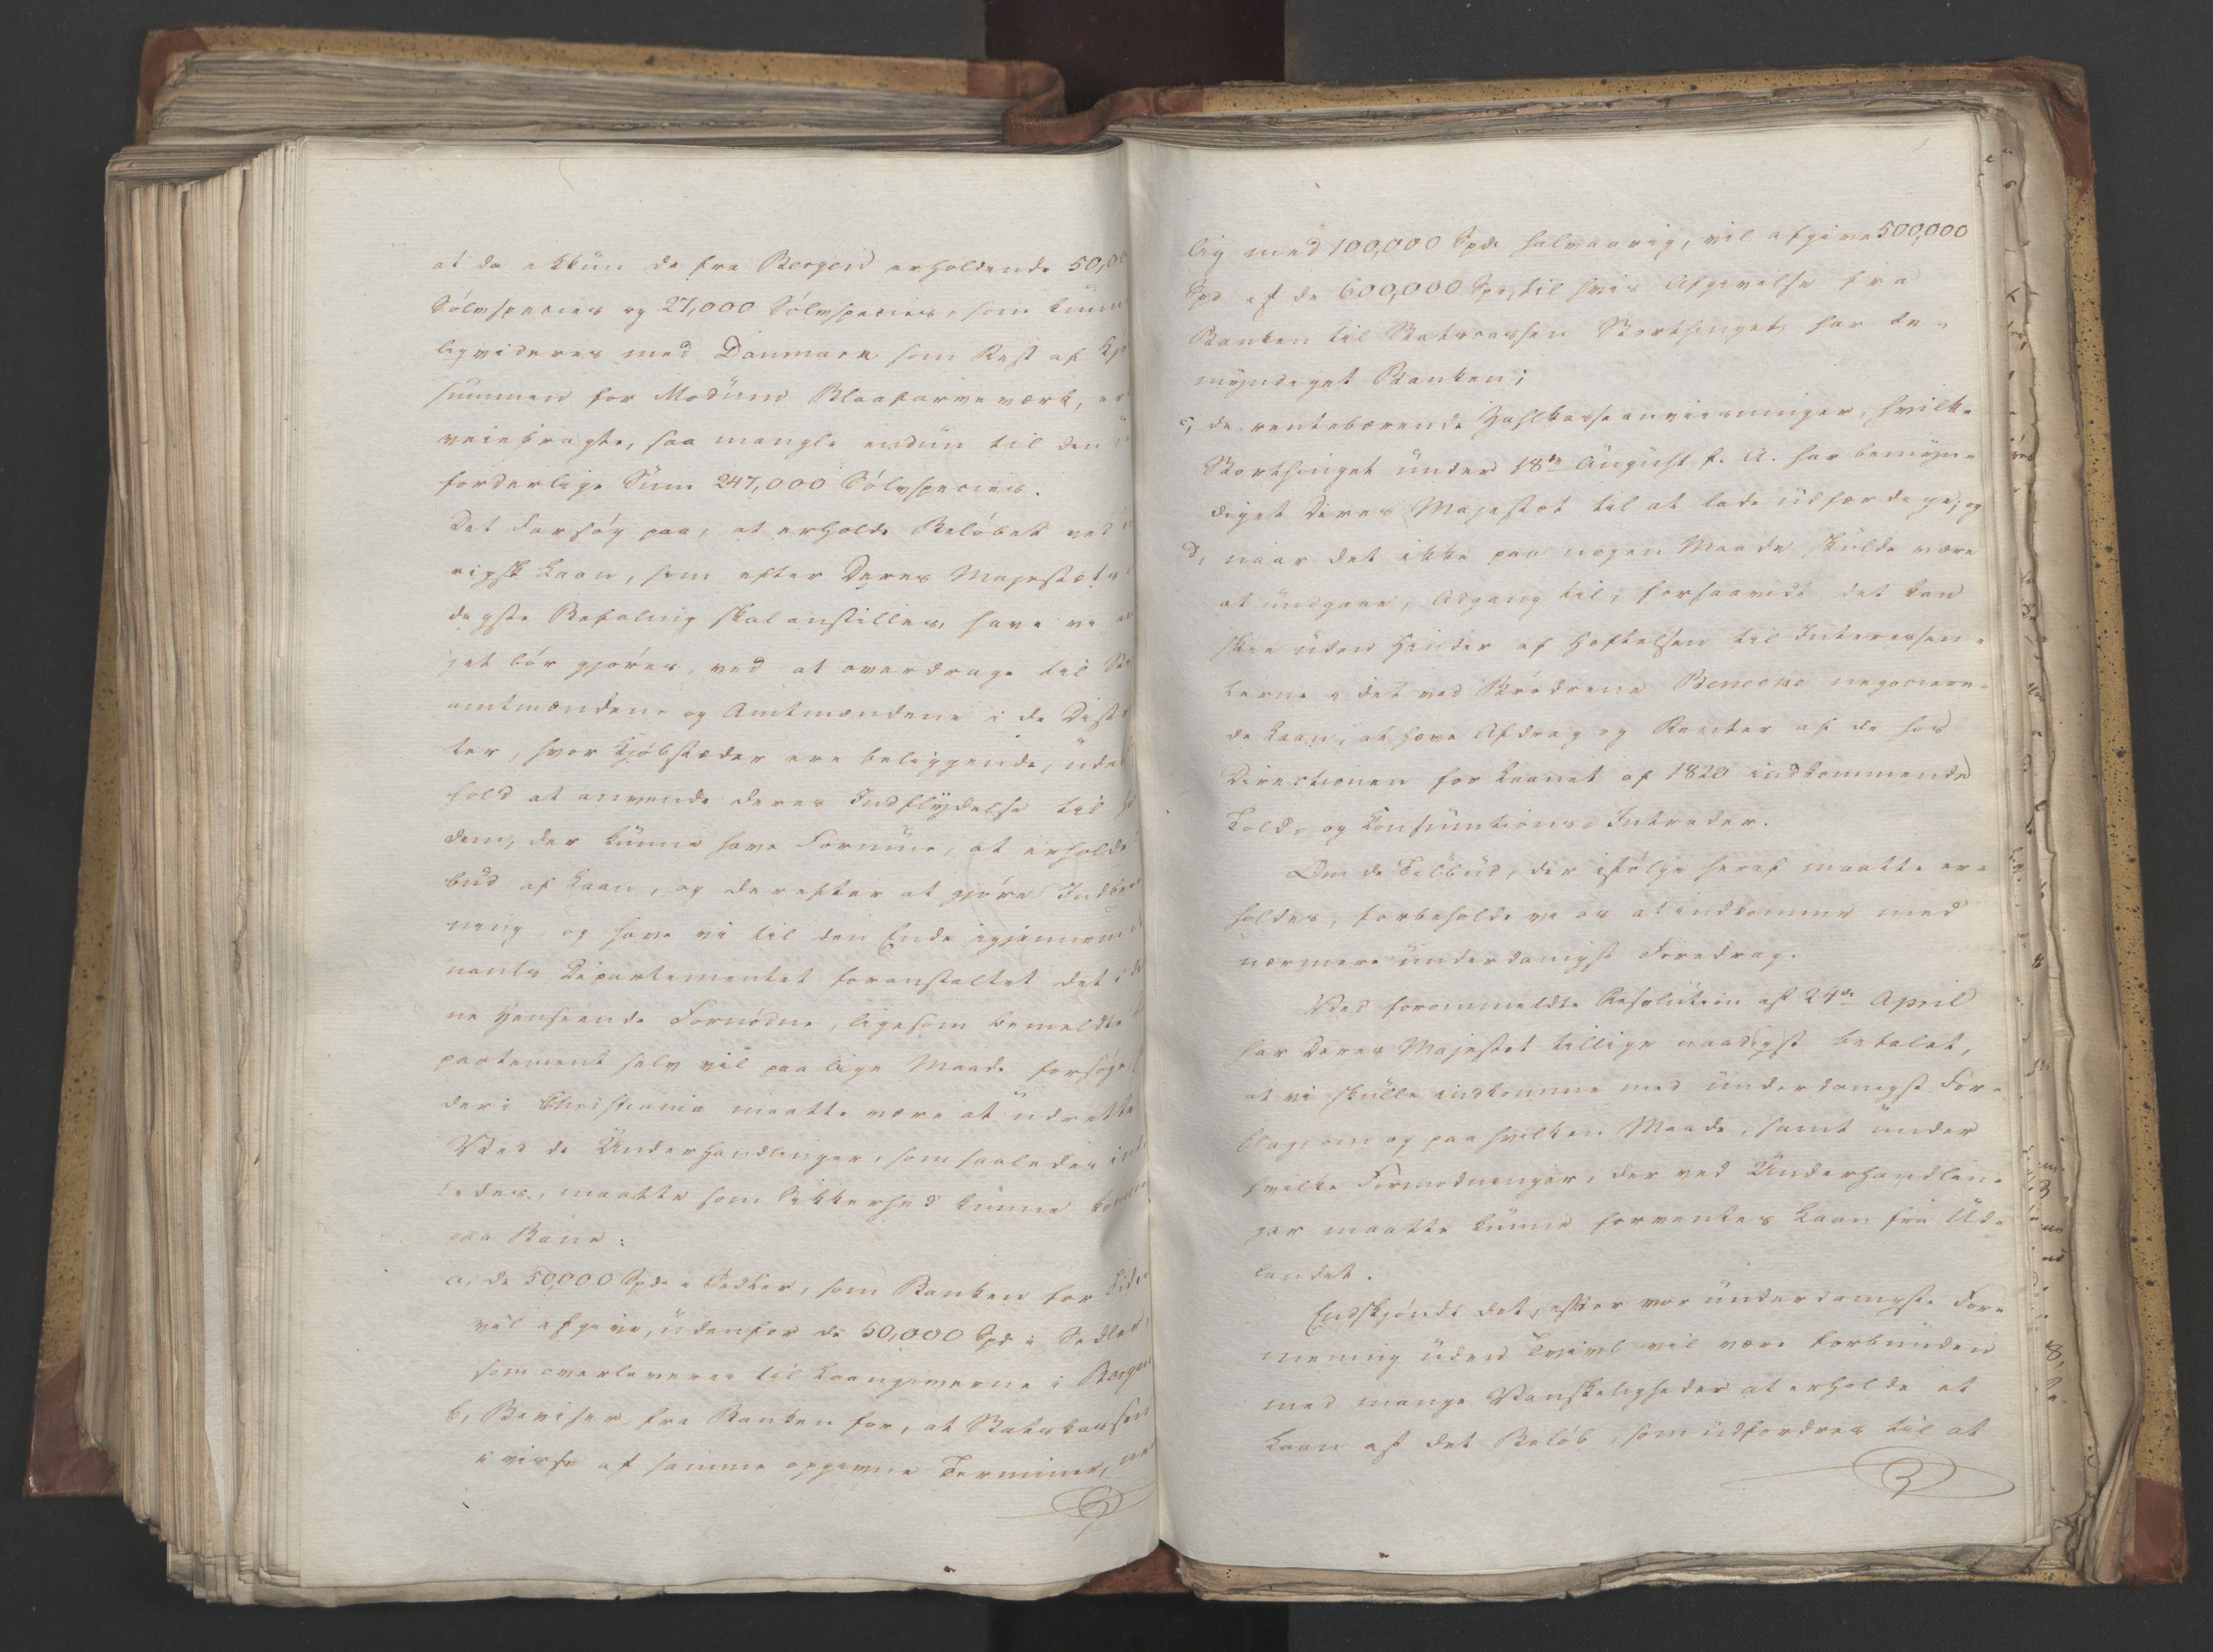 at da ekkün de fra Bergen erholdende 50,00
Sölvspecies og 27,000 Sölvspecies, som kunn
liqvideres med Danmark som Rest af Kj
summen for Modüms Blaafarveværk, er
veiebragte, saa mangle endnü til den
forderlige Süm 247,000 Sölvspecies.
Det Forsög paa, at erholde Belöbet ved
rigsk Laan, som efter Deres Majestæts
digste Befaling skal anstilles, have vi
get bör gjöres, ved at overdrage til St
amtmændene og Amtmændene i de Dist
ter, hvor Kjöbstæder ere beliggende, üde
hold at anvende deres Indflydelse til
dem, der künne have Formüe, at erholde
büd af Laan, og derefter at gjöre Indbe
ning og have vi til den Ende igjennem
nants Departementet foranstaltet det i
ne Henseende Fornödne, ligesom bemeldte
partement selv vil paa lige Maade forsöge
der i Christiania maatte være at üdrette
Ved de Ünderhandlinger, som saaledes
ledes, maatte som Sikkerhed künne komme
paa Bane:
a, de 50,000 Spd i Sedler, som Banken for Tiden
vil afgive, üdenfor de 50,000 Spd i Sedler,
som overleveres til Laangiverne i Bergen
b, Beviser fra Banken for, at Statskassen
i visse af samme opgivne Terminer,
lig med 100,000 Spd halvaarig, vil afgive 500,000
Spd af de 600,000 Spd, til hvis Afgivelse fra
Banken til Statscassen Storthinget har be-
myndiget Banken;
c, de rentebærende Zahlkasseanviisninger, hvilke
Storthinget ünder 18de Aügüst f. A. har bemyn-
diget Deres Majestæt til at lade üdfærdige; og
d, naar det ikke paa nogen Maade skülde være
at ündgaae, Adgang til, forsaavidt det kan
skee üden Hinder af Heftelsen til Interessen-
terne i det ved Brödrene Benecke negocieere-
de Laan, at have Afdrag og Renter af de hos
Directionen for Laanet af 1820 indkommende
Told- og Consümtions-Intrader.
Om de Tilbüd, der ifölge heraf maatte er-
holdes, forbeholde vi os at indkomme med
nærmere ünderdanigst Foredrag.
Ved forommeldte Resolütion af 24de April
har Deres Majestæt tillige naadigst befalet,
at vi skülle indkomme med ünderdanigst For-
slag, om og paa hvilken Maade, samt ünder
hvilke Formodninger, der ved Ünderhandlin-
ger maatte künne forventes Laan fra Üd-
landet.
Endskjöndt det, efter vor ünderdanigste For-
mening üden Tvivl vil være forbünden
med mange Vanskeligheder at erholde et
Laan af det Belöb, som üdfordres til at